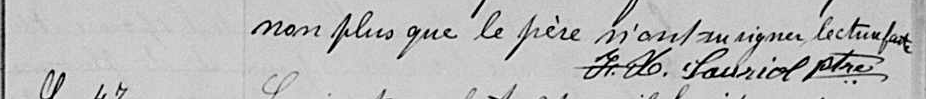 non plus que le père n'ont su signer, lecture faite
F. X. Lauriol ptre
S. 47